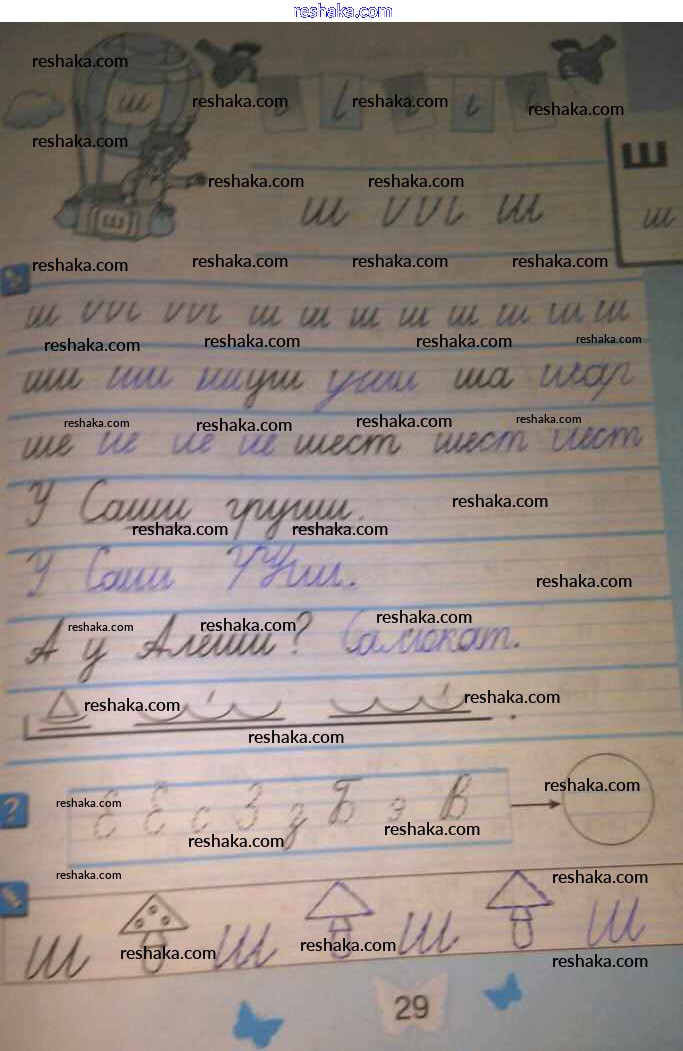 reshaka.com
ш
ш
ш
ш ш
ш ш ш ш ш ш ш ш
ши ши уш уши ша шар
ше шест шест шест
У Саши груши.
У Саши
А у Алеши? Самокат.
Е Ё с З з Б э В
Ш Ш Ш Ш
29